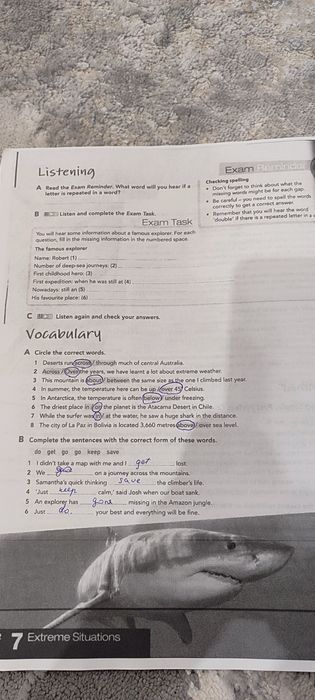 Listening
Exam Reminder
A Read the Exam Reminder. What word will you hear if a
letter is repeated in a word?
Checking spelling
• Don't forget to think about what the
missing words might be for each gap.
• Be careful – you need to spell the words
correctly to get a correct answer.
• Remember that you will hear the word
'double' if there is a repeated letter in a
B Listen and complete the Exam Task.
Exam Task
You will hear some information about a famous explorer. For each
question, fill in the missing information in the numbered space.
The famous explorer
Name: Robert (1)
Number of deep-sea journeys: (2)
First childhood hero: (3)
First expedition: when he was still at (4)
Nowadays: still an (5)
His favourite place: (6)
C Listen again and check your answers.
Vocabulary
A Circle the correct words.
1 Deserts run across / through much of central Australia.
2 Across / Over the years, we have learnt a lot about extreme weather.
3 This mountain is about / between the same size as the one I climbed last year.
4 In summer, the temperature here can be up / over 45° Celsius.
5 In Antarctica, the temperature is often below / under freezing.
6 The driest place in / on the planet is the Atacama Desert in Chile.
7 While the surfer was in / at the water, he saw a huge shark in the distance.
8 The city of La Paz in Bolivia is located 3,660 metres above / over sea level.
B Complete the sentences with the correct form of these words.
do get go go keep save
1 I didn't take a map with me and I got lost.
2 We on a journey across the mountains.
3 Samantha's quick thinking save the climber's life.
4 'Just keep calm,' said Josh when our boat sank.
5 An explorer has gone missing in the Amazon jungle.
6 Just do your best and everything will be fine.
7 Extreme Situations